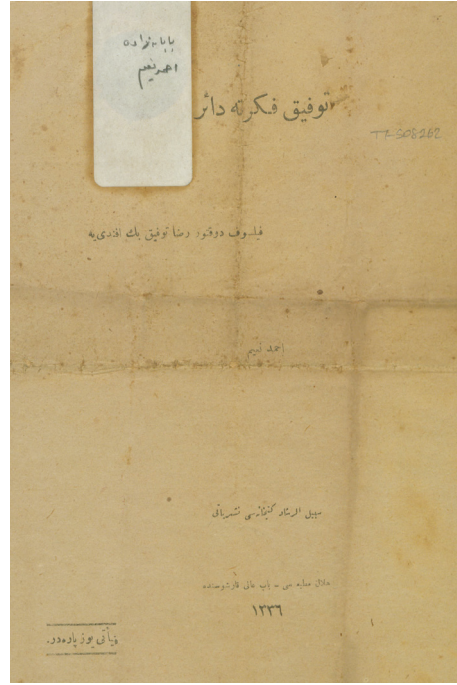 بابان زاده
احمد نعیم
توفیق فكرته دائر
TL 508262
فیلسوف دوقتور رضا توفیق بك افندی یه
احمد نعیم
سبیل الرشاد كتبخانه سی نشریاتی
هلال مطبعه سی - باب عالی قارشوسنده
١٣٣٦
فیأتی یوز پاره در.